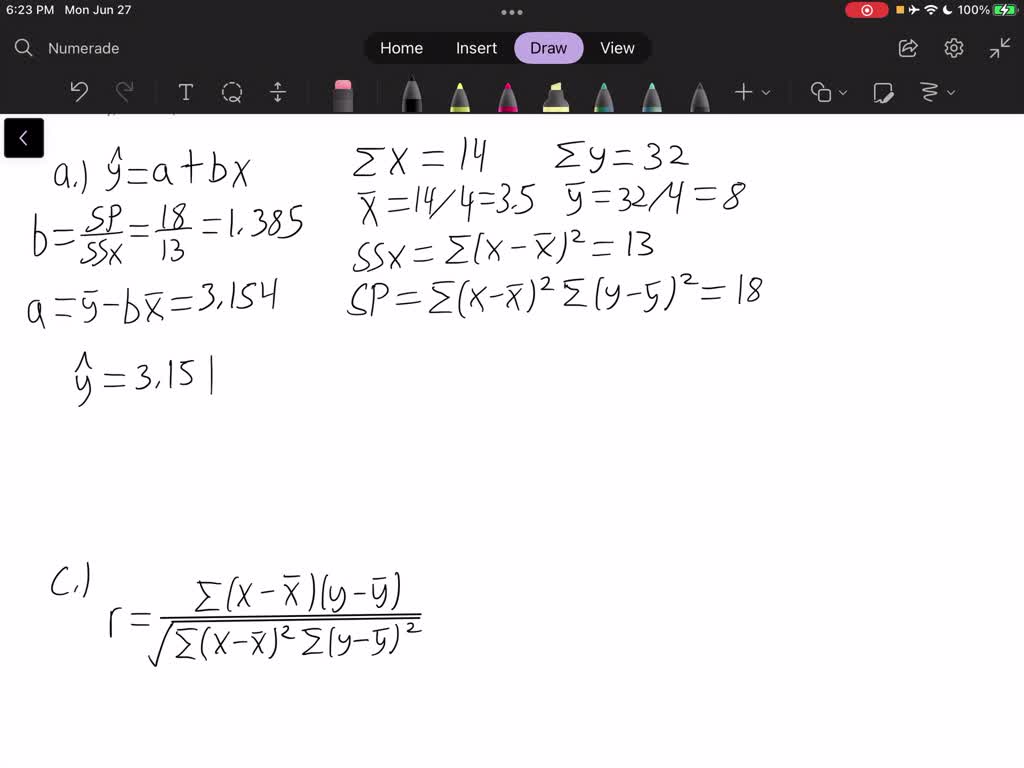 6:23 PM Mon Jun 27 100%
Numerade Home Insert Draw View
T
a.) ŷ = a + bx
b = SP/SSX = 18/13 = 1.385
a = ȳ - bx̄ = 3.154
ŷ = 3.15 |
Σx = 14 Σy = 32
x̄ = 14/4 = 3.5 ȳ = 32/4 = 8
SSX = Σ(x - x̄)² = 13
SP = Σ(x - x̄)² Σ(y - ȳ)² = 18
c.)
r = Σ(x - x̄)(y - ȳ) / √Σ(x - x̄)² Σ(y - ȳ)²